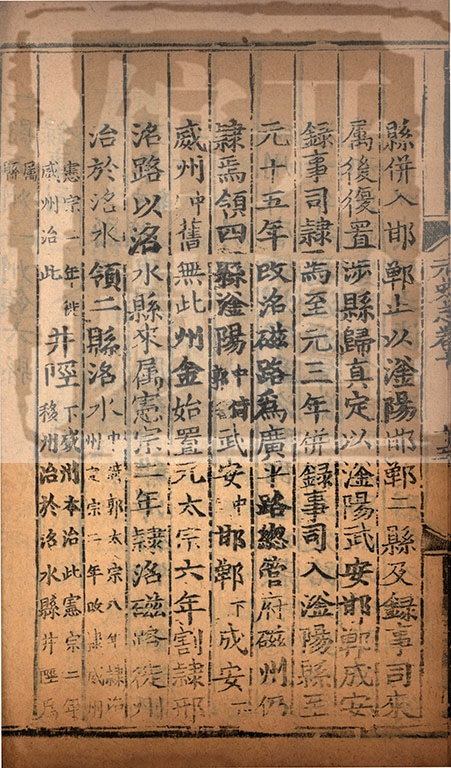 縣併入邯鄲止以滏陽邯鄲二縣及錄事司來
属後復置涉縣歸真定以滏陽武安邯鄲成安
錄事司隸焉至元三年併錄事司入滏陽縣至
元十五年改洺磁路爲廣平路總管府磁州仍
隸焉領四縣滏陽中倚郭武安中邯鄲下成安下
威州中舊無此州金始置元太宗六年割隸邢
洺路以洺水縣來属憲宗二年隸洺磁路徙州
治於洺水領二縣洺水中倚郭太宗八年隸洺州定宗二年改隸威州
憲宗二年徙威州治此井陘下威州本治此憲宗二年移州治於洺水縣井陘爲
属縣